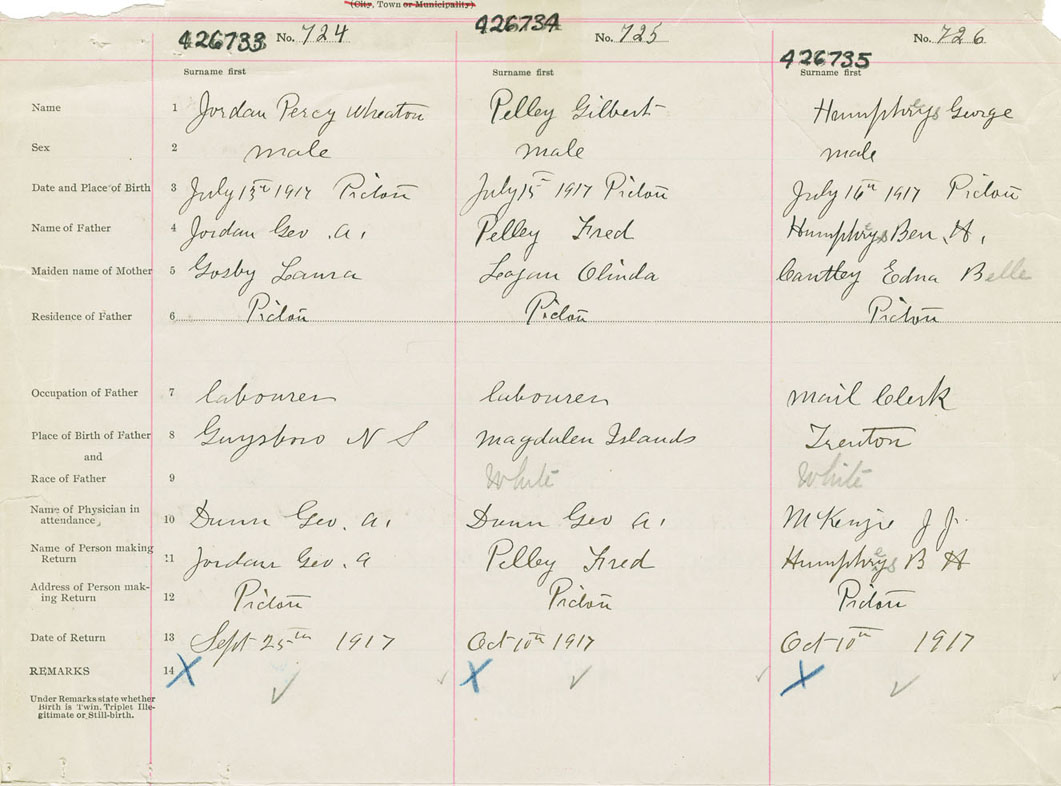 (City, Town or Municipality)
426733 No. 724 426734 No. 725 426735 No. 726
Surname first Surname first Surname first
Name 1 Jordan Percy Wheaton Pelley Gilbert Humphreys George
Sex 2 male male male
Date and Place of Birth 3 July 15th 1917 Pictou July 15th 1917 Pictou July 16th 1917 Pictou
Name of Father 4 Jordan Geo. A. Pelley Fred Humphreys Ben. H.
Maiden name of Mother 5 Gosby Laura Logan Olinda Cantley Edna Belle
Residence of Father 6 Pictou Pictou Pictou
Occupation of Father 7 labourer labourer Mail Clerk
Place of Birth of Father 8 Guysboro N S Magdalen Islands Trenton
and
Race of Father 9 White White
Name of Physician in
attendance, 10 Dunn Geo. A. Dunn Geo A. McKenzie J J.
Name of Person making
Return 11 Jordan Geo. A Pelley Fred Humphreys B H
Address of Person mak-
ing Return 12 Pictou Pictou Pictou
Date of Return 13 Sept 25th 1917 Oct 10th 1917 Oct 10th 1917
REMARKS 14
Under Remarks state whether
Birth is Twin, Triplet Ille-
gitimate or Still-birth.